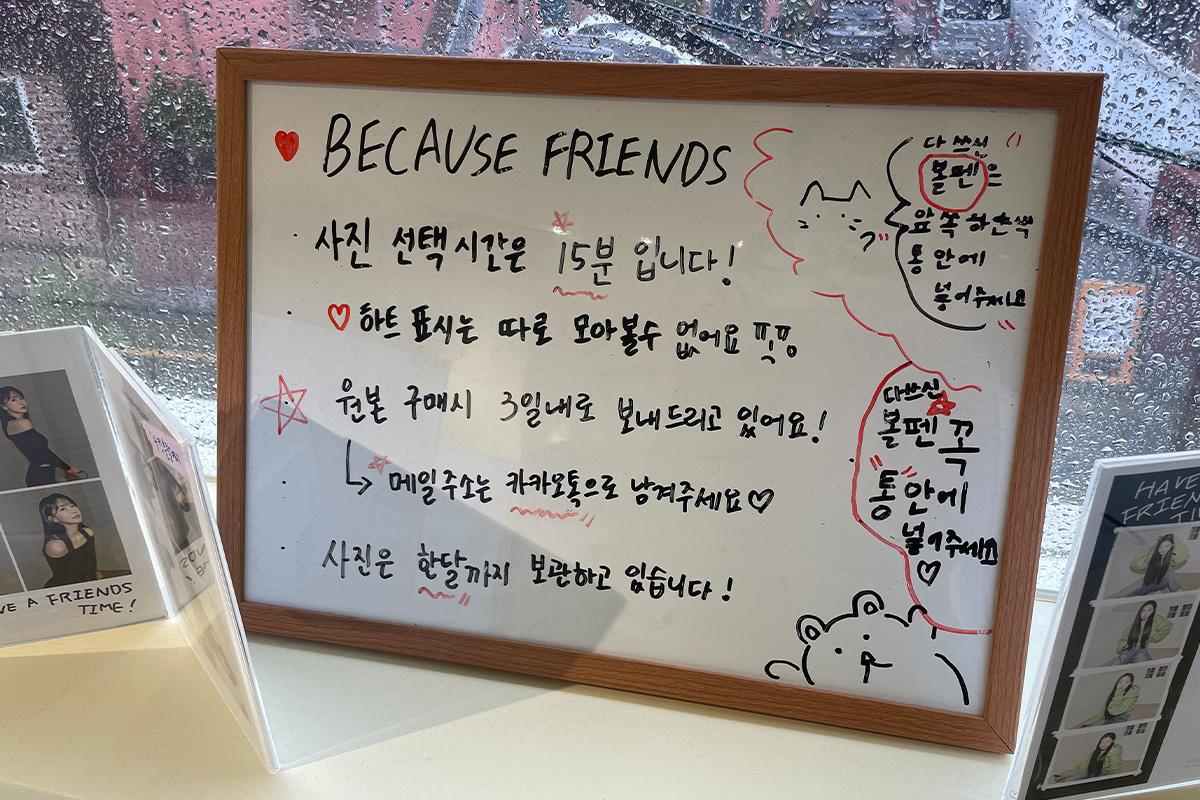 BECAUSE FRIENDS
사진 선택 시간은 15분 입니다!
하트 표시는 따로 모아볼수 없어요
원본 구매시 3일내로 보내드리고 있어요!
메일주소는 카카오톡으로 남겨주세요
사진은 한달까지 보관하고 있습니다!
다 쓰신
볼펜은
앞쪽 하는색
통 안에
넣어주세요
다쓰신
볼펜 꼭
통 안에
넣어주세요
A FRIENDS
TIME!
HAVE